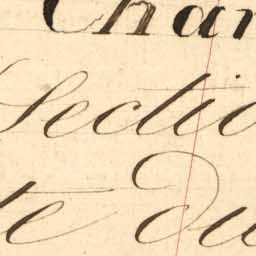 Char
Sectio
te du